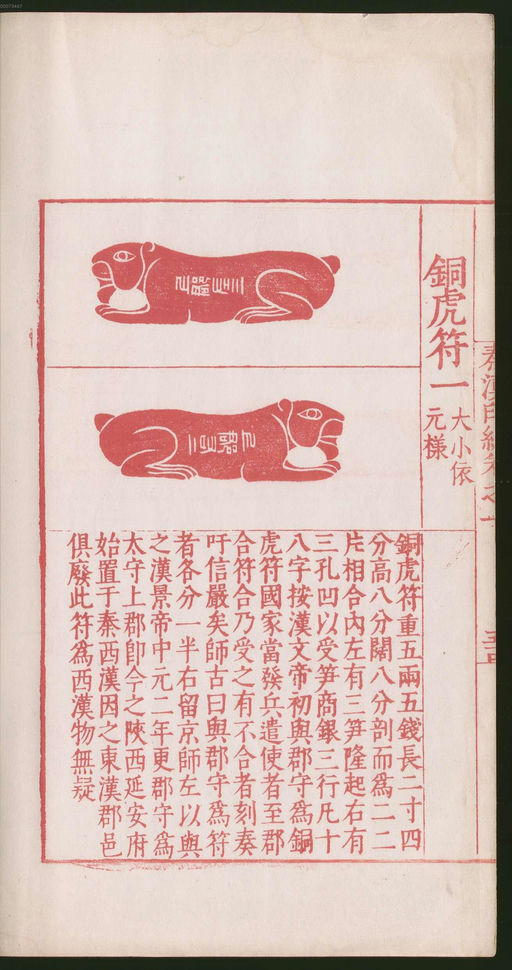 00073487
銅虎符一
大小依
元樣
銅虎符重五兩五錢長二寸四
分高八分闊八分剖而為二二
片相合內左有三笋隆起右有
三孔凹以受笋商銀三行凡十
八字按漢文帝初與郡守為銅
虎符國家當發兵遣使者至郡
合符合乃受之有不合者刻奏
吁信嚴矣師古曰與郡守為符
者各分一半右留京師左以與
之漢景帝中元二年更郡守為
太守上郡卽今之陝西延安府
始置于秦西漢因之東漢郡邑
俱廢此符為西漢物無疑